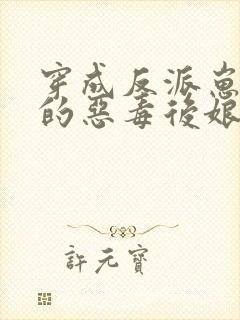 穿成反派崽
的惡毒後娘
許元寶